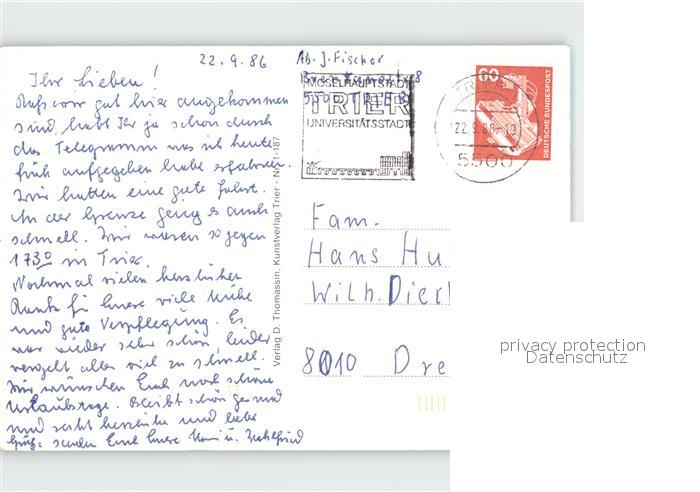 22.9.86
Ab. J. Fischer
5500 TRIER
Ihr Lieben!
Daß wir gut hier angekommen
sind, habt Ihr ja schon durch
das Telegramm was ich heute
früh aufgegeben habe erfahren.
Wir hatten eine gute Fahrt.
An der Grenze ging es auch
schnell. Wir waren so gegen
17³⁰ in Trier.
Nochmal vielen herzlichen
Dank für Eure viele Mühe
und gute Verpflegung. Es
war wieder sehr schön, leider
vergeht alles viel zu schnell.
Wir wünschen Euch noch schöne
Urlaubstage. Bleibt schön gesund
und seid herzliche und liebe
Grüße senden Euch Eure u.
Verlag D. Thomassin, Kunstverlag Trier - Nr. 51-187
MOSELHAUPTSTADT
TRIER
UNIVERSITÄTSSTADT
22.9.86-19
5500
60
DEUTSCHE BUNDESPOST
Fam.
Hans Hu
Wilh. Dier
8010 Dre
privacy protection
Datenschutz